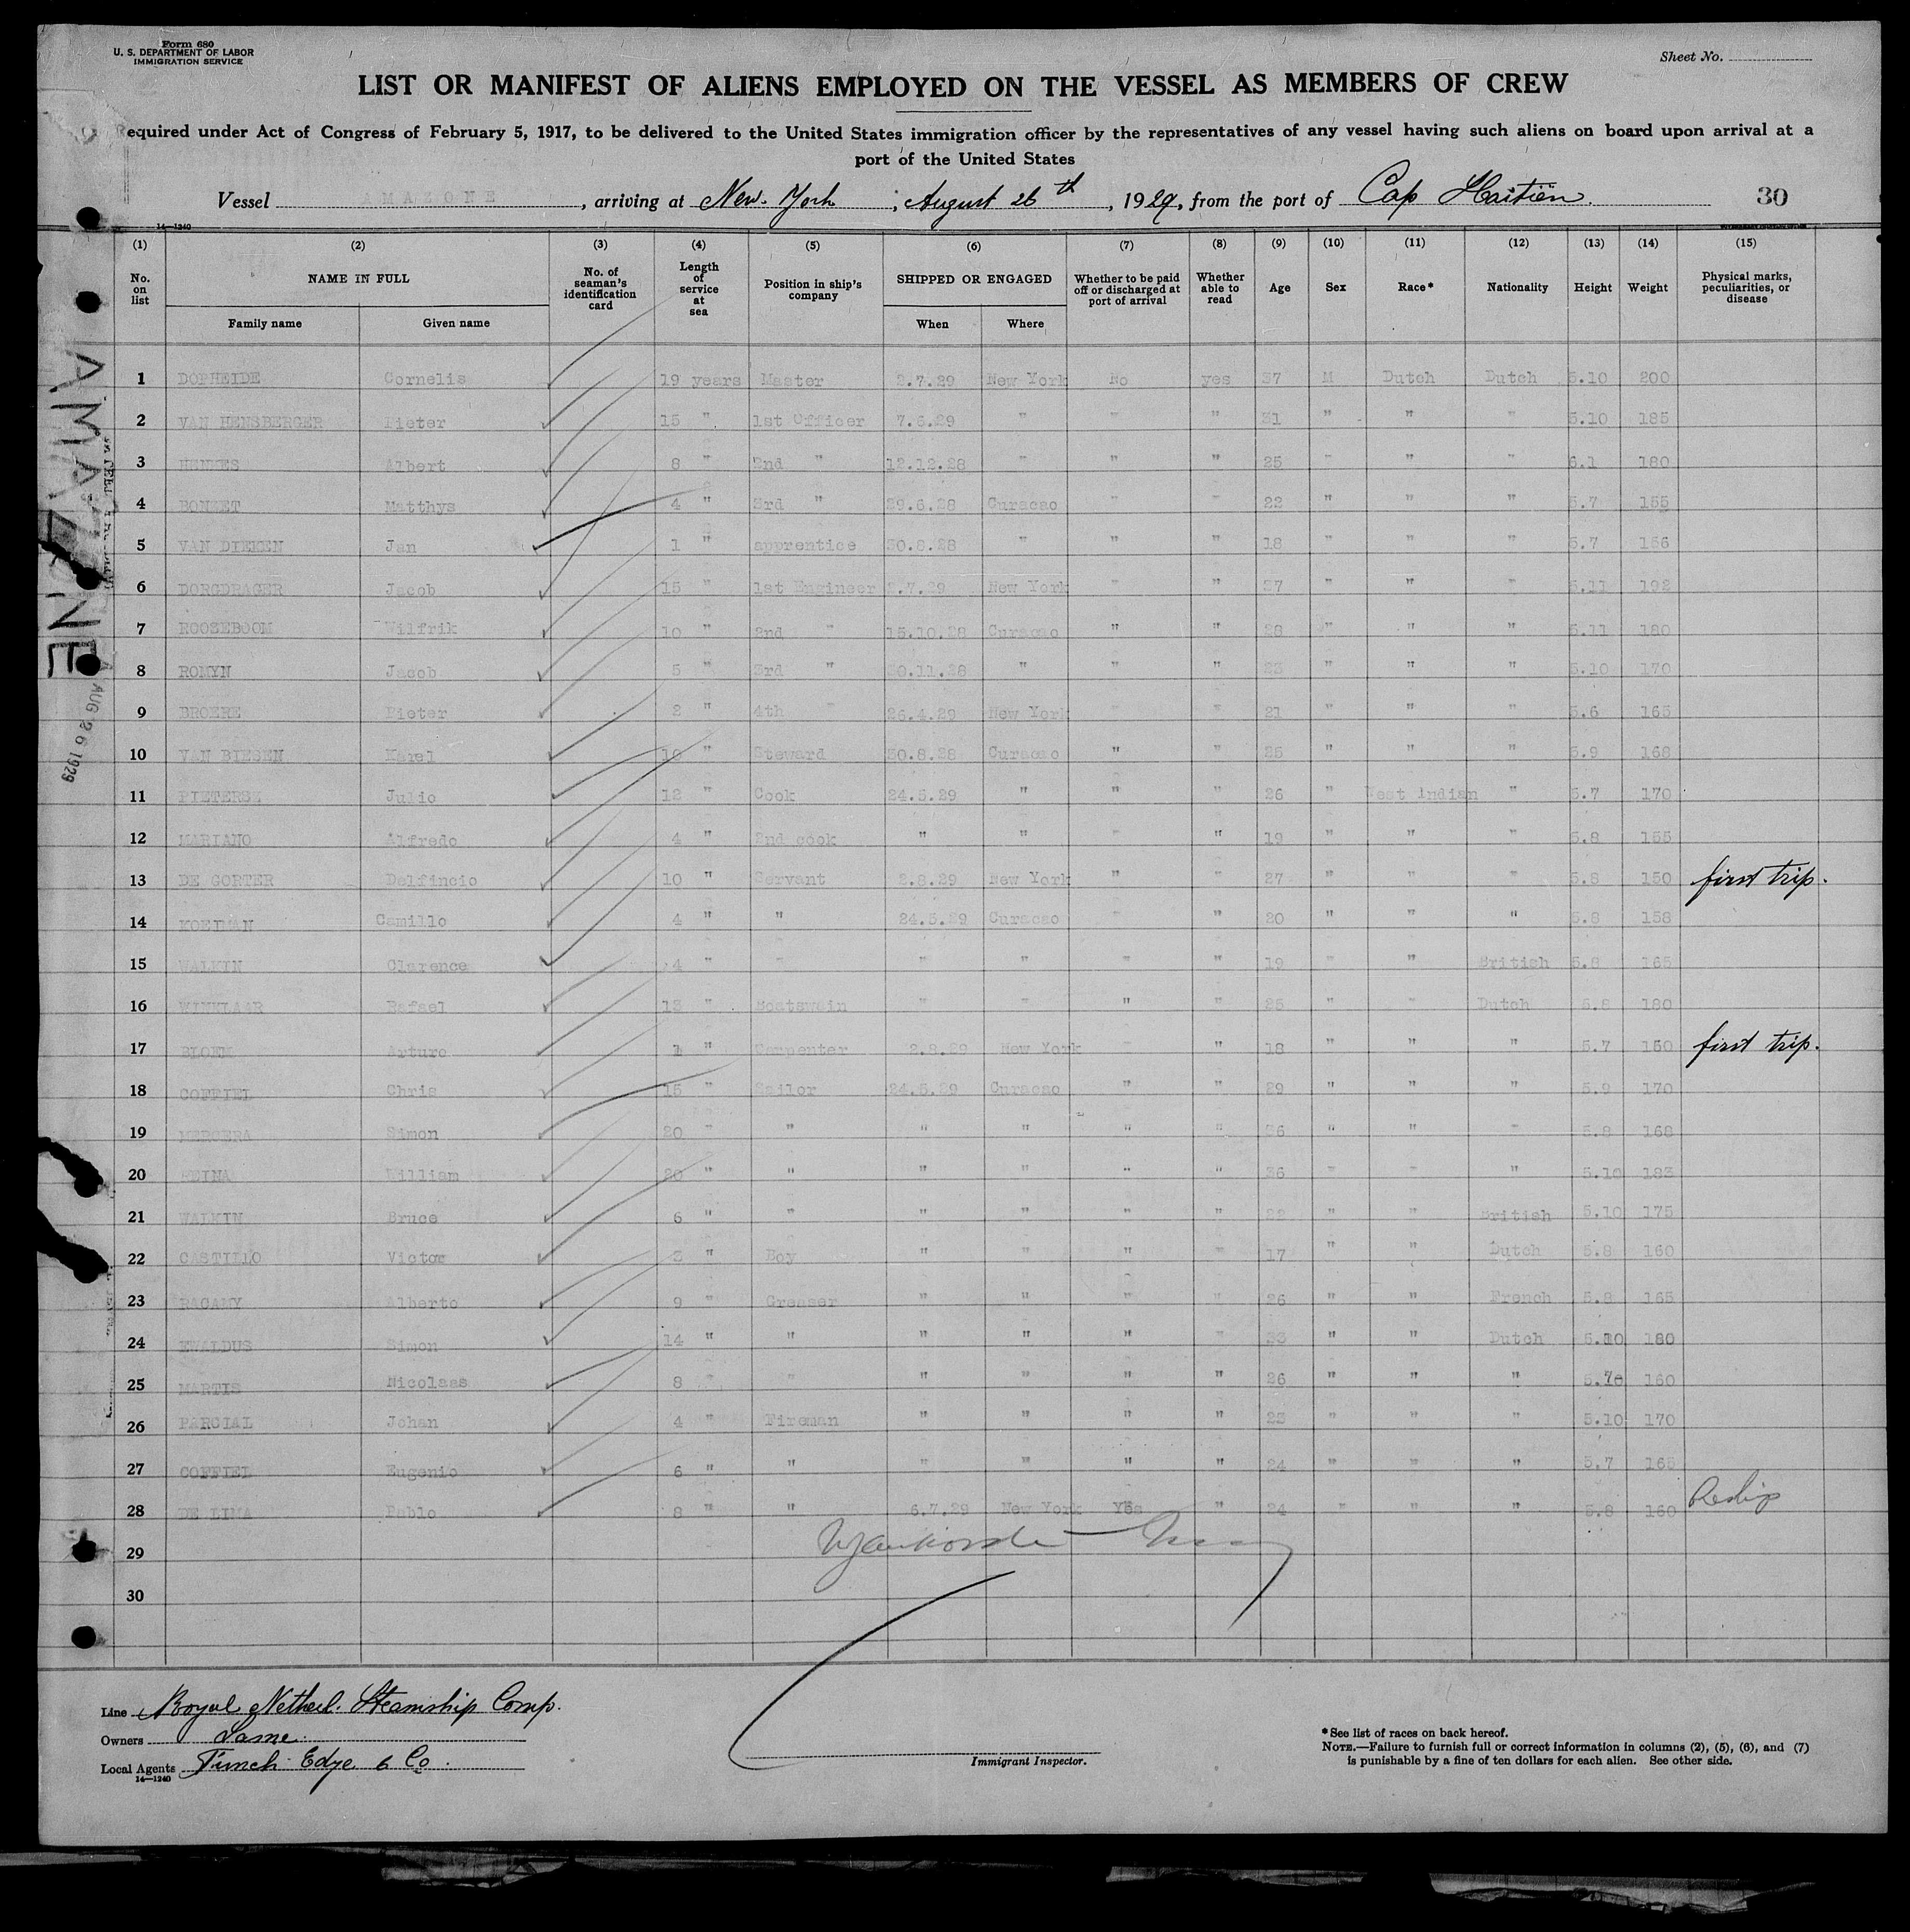 Form 680
U. S. DEPARTMENT OF LABOR
IMMIGRATION SERVICE
Sheet No.
LIST OR MANIFEST OF ALIENS EMPLOYED ON THE VESSEL AS MEMBERS OF CREW
equired under Act of Congress of February 5, 1917, to be delivered to the United States immigration officer by the representatives of any vessel having such aliens on board upon arrival at a
port of the United States
Vessel AMAZONE, arriving at New-York, August 26th, 1929, from the port of Cap Haïtiën. 30
14—1240
(1) (2) (3) (4) (5) (6) (7) (8) (9) (10) (11) (12) (13) (14) (15)
No. on list NAME IN FULL Family name Given name No. of seaman's identification card Length of service at sea Position in ship's company SHIPPED OR ENGAGED When Where Whether to be paid off or discharged at port of arrival Whether able to read Age Sex Race* Nationality Height Weight Physical marks, peculiarities, or disease
1 DOPHEIDE Cornelis 19 years Master 2.7.29 New York No yes 37 M Dutch Dutch 5.10 200
2 VAN HENSBERGER Pieter 15 " 1st Officer 7.6.29 " " " 31 " " " 5.10 185
3 Albert 8 " 2nd " 12.12.28 " " " 25 " " " 6.1 180
4 BONZET Matthys 4 " 3rd " 29.6.28 Curacao " " 22 " " " 5.7 155
5 VAN DIEKEN Jan 1 " apprentice 30.8.28 " " " 18 " " " 5.7 156
6 DORGDRAGER Jacob 15 " 1st Engineer 2.7.29 New York " " 37 " " " 5.11 192
7 ROOSEBOOM Wilfrik 10 " 2nd " 15.10.28 Curacao " " 28 " " " 5.11 180
8 ROMYN Jacob 5 " 3rd " 30.11.28 " " " 23 " " " 5.10 170
9 BROERE Pieter 2 " 4th " 26.4.29 New York " " 21 " " " 5.6 165
10 VAN BIESEN Karel 10 " Steward 30.8.28 Curacao " " 25 " " " 5.9 168
11 PIETERSZ Julio 12 " Cook 24.5.29 " " " 26 " West Indian " 5.7 170
12 MARIANO Alfredo 4 " 2nd cook " " " " 19 " " " 5.8 155
13 DE GORTER Delfincio 10 " Servant 2.8.29 New York " " 27 " " " 5.8 150 first trip.
14 KOEIMAN Camillo 4 " " 24.5.29 Curacao " " 20 " " " 5.8 158
15 WALKIN Clarence 4 " " " " " " 19 " " British 5.8 165
16 WINKLAAR Rafael 13 " Boatswain " " " " 25 " " Dutch 5.8 180
17 BLOEM Arturo 1 " Carpenter 2.8.29 New York " " 18 " " " 5.7 150 first trip.
18 COFFIEL Chris 15 " Sailor 24.5.29 Curacao " " 29 " " " 5.9 170
19 MERCERA Simon 20 " " " " " " 36 " " " 5.8 168
20 REINA William 20 " " " " " " 36 " " " 5.10 183
21 WALKIN Bruce 6 " " " " " " 22 " " British 5.10 175
22 CASTILLO Victor 3 " Boy " " " " 17 " " Dutch 5.8 160
23 RAGAMY Alberto 9 " Greaser " " " " 26 " " French 5.8 165
24 EWALDUS Simon 14 " " " " " " 33 " " Dutch 5.10 180
25 MARTIS Nicolaas 8 " " " " " " 26 " " " 160
26 PARCIAL Johan 4 " Fireman " " " " 23 " " " 5.10 170
27 COFFIEL Eugenio 6 " " " " " " 24 " " " 5.7 165
28 DE LIMA Pablo 8 " " 6.7.29 New York Yes " 24 " " " 5.8 160 Reship
29
30
AMAZONE
AUG 26 1929
Line Royal Netherl. Steamship Comp.
Owners Same
Local Agents Funch Edye & Co.
14—1240
Immigrant Inspector.
*See list of races on back hereof.
NOTE.—Failure to furnish full or correct information in columns (2), (5), (6), and (7)
is punishable by a fine of ten dollars for each alien. See other side.